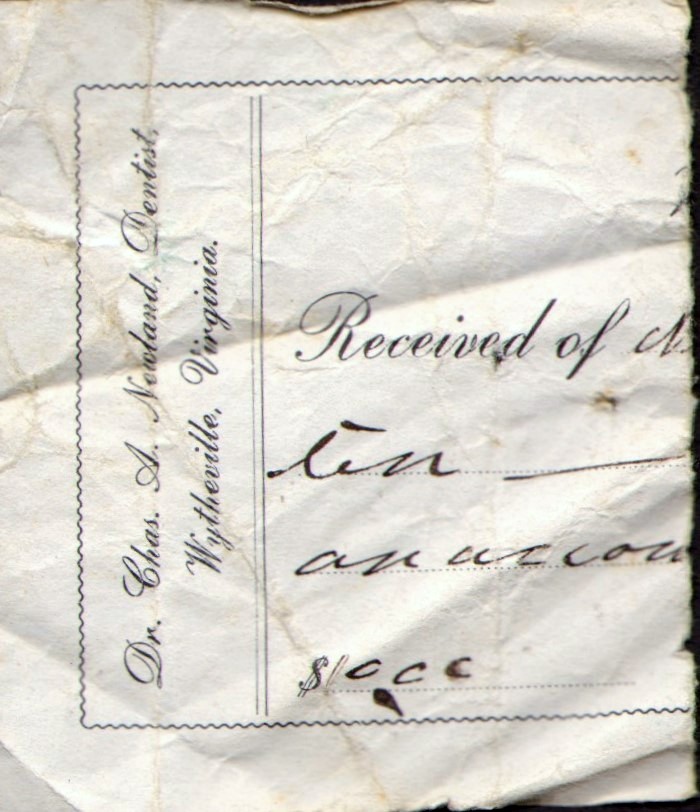 Dr. Chas. A. Nowland, Dentist,
Wytheville, Virginia.
Received of
ten
on accou
$10.00